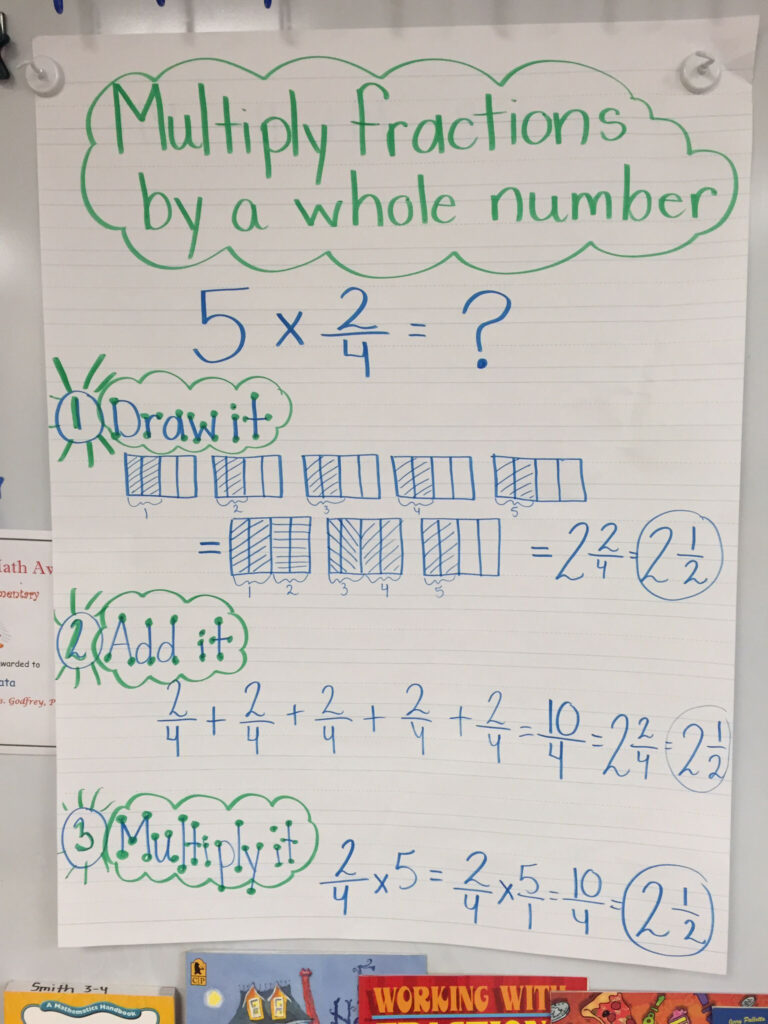 Multiply fractions
by a whole number
5 × 2/4 = ?
1 Draw it
1 2 3 4 5
= = 2 2/4 = 2 1/2
1 2 3 4 5
2 Add it
2/4 + 2/4 + 2/4 + 2/4 + 2/4 = 10/4 = 2 2/4 = 2 1/2
3 Multiply it
2/4 × 5 = 2/4 × 5/1 = 10/4 = 2 1/2
ath Aw
mentary
warded to
ata
s. Godfrey, P
Smith 3-4
A Mathematics Handbook
WORKING WITH